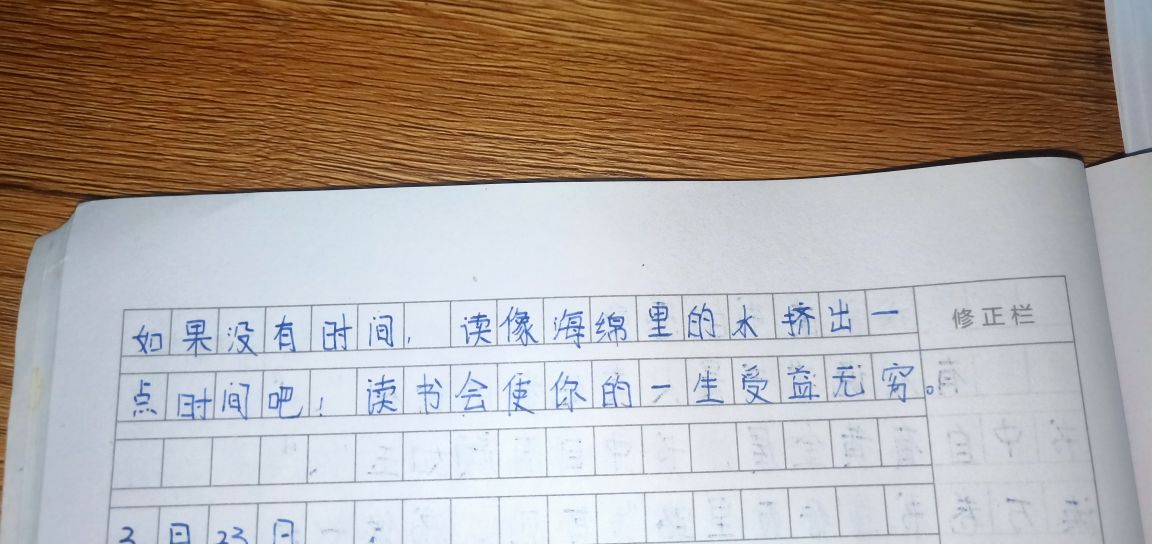 如果没有时间，读像海绵里的水挤出一
修正栏
点时间吧！读书会使你的一生受益无穷。
3月23日